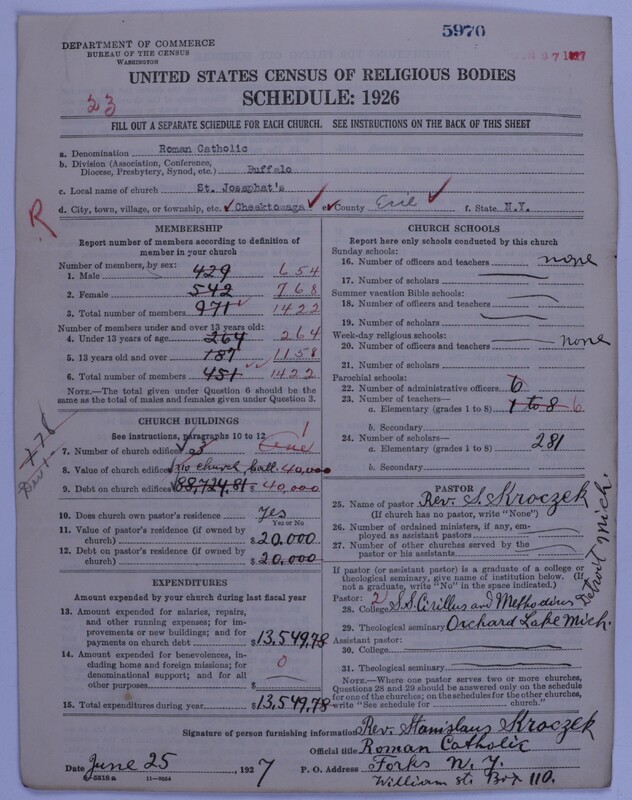 5970
DEPARTMENT OF COMMERCE
BUREAU OF THE CENSUS
WASHINGTON
UNITED STATES CENSUS OF RELIGIOUS BODIES
23
SCHEDULE: 1926
FILL OUT A SEPARATE SCHEDULE FOR EACH CHURCH. SEE INSTRUCTIONS ON THE BACK OF THIS SHEET
a. Denomination Roman Catholic
b. Division (Association, Conference, Diocese, Presbytery, Synod, etc.) Buffalo
c. Local name of church St. Josaphat's
d. City, town, village, or township, etc. Cheektowaga e. County Erie f. State N.Y.
R
MEMBERSHIP
Report number of members according to definition of
member in your church
Number of members, by sex:
1. Male 429 654
2. Female 542 768
3. Total number of members 971 1422
Number of members under and over 13 years old:
4. Under 13 years of age 264 264
5. 13 years old and over 187 1158
6. Total number of members 451 1422
NOTE.—The total given under Question 6 should be the
same as the total of males and females given under Question 3.
CHURCH BUILDINGS
See instructions, paragraphs 10 to 12
7. Number of church edifices 1
8. Value of church edifices no church, hall 40,000
9. Debt on church edifices 88,724.81 $ 40,000
10. Does church own pastor's residence yes
Yes or No
11. Value of pastor's residence (if owned by
church) $ 20,000
12. Debt on pastor's residence (if owned by
church) $ 20,000
EXPENDITURES
Amount expended by your church during last fiscal year
13. Amount expended for salaries, repairs,
and other running expenses; for im-
provements or new buildings; and for
payments on church debt $ 13,549,78
14. Amount expended for benevolences, in-
cluding home and foreign missions; for
denominational support; and for all
other purposes $ 0
15. Total expenditures during year $ 13,549,78
CHURCH SCHOOLS
Report here only schools conducted by this church
Sunday schools:
16. Number of officers and teachers none
17. Number of scholars
Summer vacation Bible schools:
18. Number of officers and teachers
19. Number of scholars
Week-day religious schools:
20. Number of officers and teachers none
21. Number of scholars
Parochial schools:
22. Number of administrative officers 6
23. Number of teachers—
a. Elementary (grades 1 to 8) 1 to 8 6
b. Secondary
24. Number of scholars—
a. Elementary (grades 1 to 8) 281
b. Secondary
PASTOR
25. Name of pastor Rev. S. Kroczek
(If church has no pastor, write "None")
26. Number of ordained ministers, if any, em-
ployed as assistant pastors
27. Number of other churches served by the
pastor or his assistants
If pastor (or assistant pastor) is a graduate of a college or
theological seminary, give name of institution below. (If
not a graduate, write "No" in the space indicated.)
Pastor: 2
28. College S.S. Cirillus and Methodius Detroit Mich.
29. Theological seminary Orchard Lake Mich.
Assistant pastor:
30. College
31. Theological seminary
NOTE.—Where one pastor serves two or more churches,
Questions 28 and 29 should be answered only on the schedule
for one of the churches; on the schedules for the other churches,
write "See schedule for church."
Signature of person furnishing information Rev. Stanislaus Kroczek
Official title Roman Catholic
Date June 25, 1927 P. O. Address Forks N.Y.
William st. Box 110.
11—9084